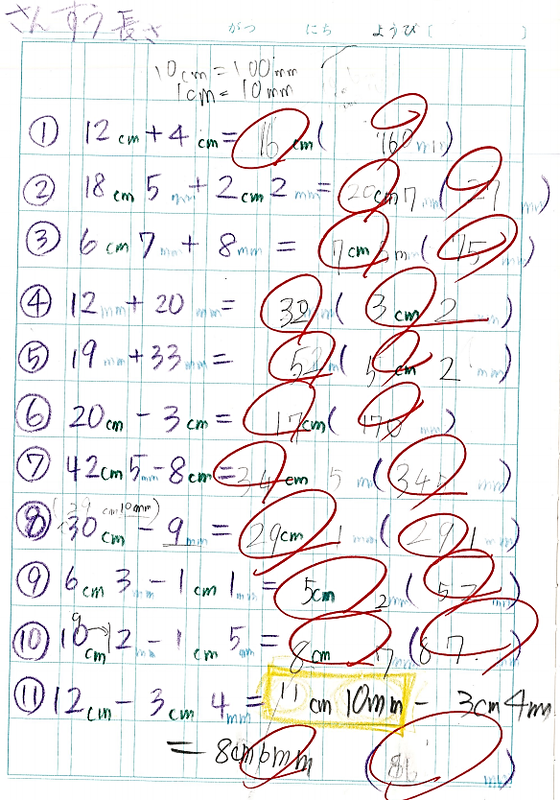 さんすう 長さ がつ にち ようび( )
10cm=100mm
1cm=10mm
① 12cm+4cm=16cm(160mm)
② 18cm5mm+2cm2mm=20cm7mm( mm)
③ 6cm7mm+8mm=7cm mm(75mm)
④ 12mm+20mm=32mm(3cm2mm)
⑤ 19mm+33mm=52mm(5cm2mm)
⑥ 20cm-3cm=17cm(170mm)
⑦ 42cm5mm-8cm=34cm5mm(345mm)
(29cm10mm)
⑧ 30cm-9mm=29cm1mm(291mm)
⑨ 6cm3mm-1cm1mm=5cm2mm(52mm)
9
⑩ 10cm12mm-1cm5mm=8cm7mm(87mm)
⑪ 12cm-3cm4mm=11cm10mm-3cm4mm
=8cm6mm(86mm)